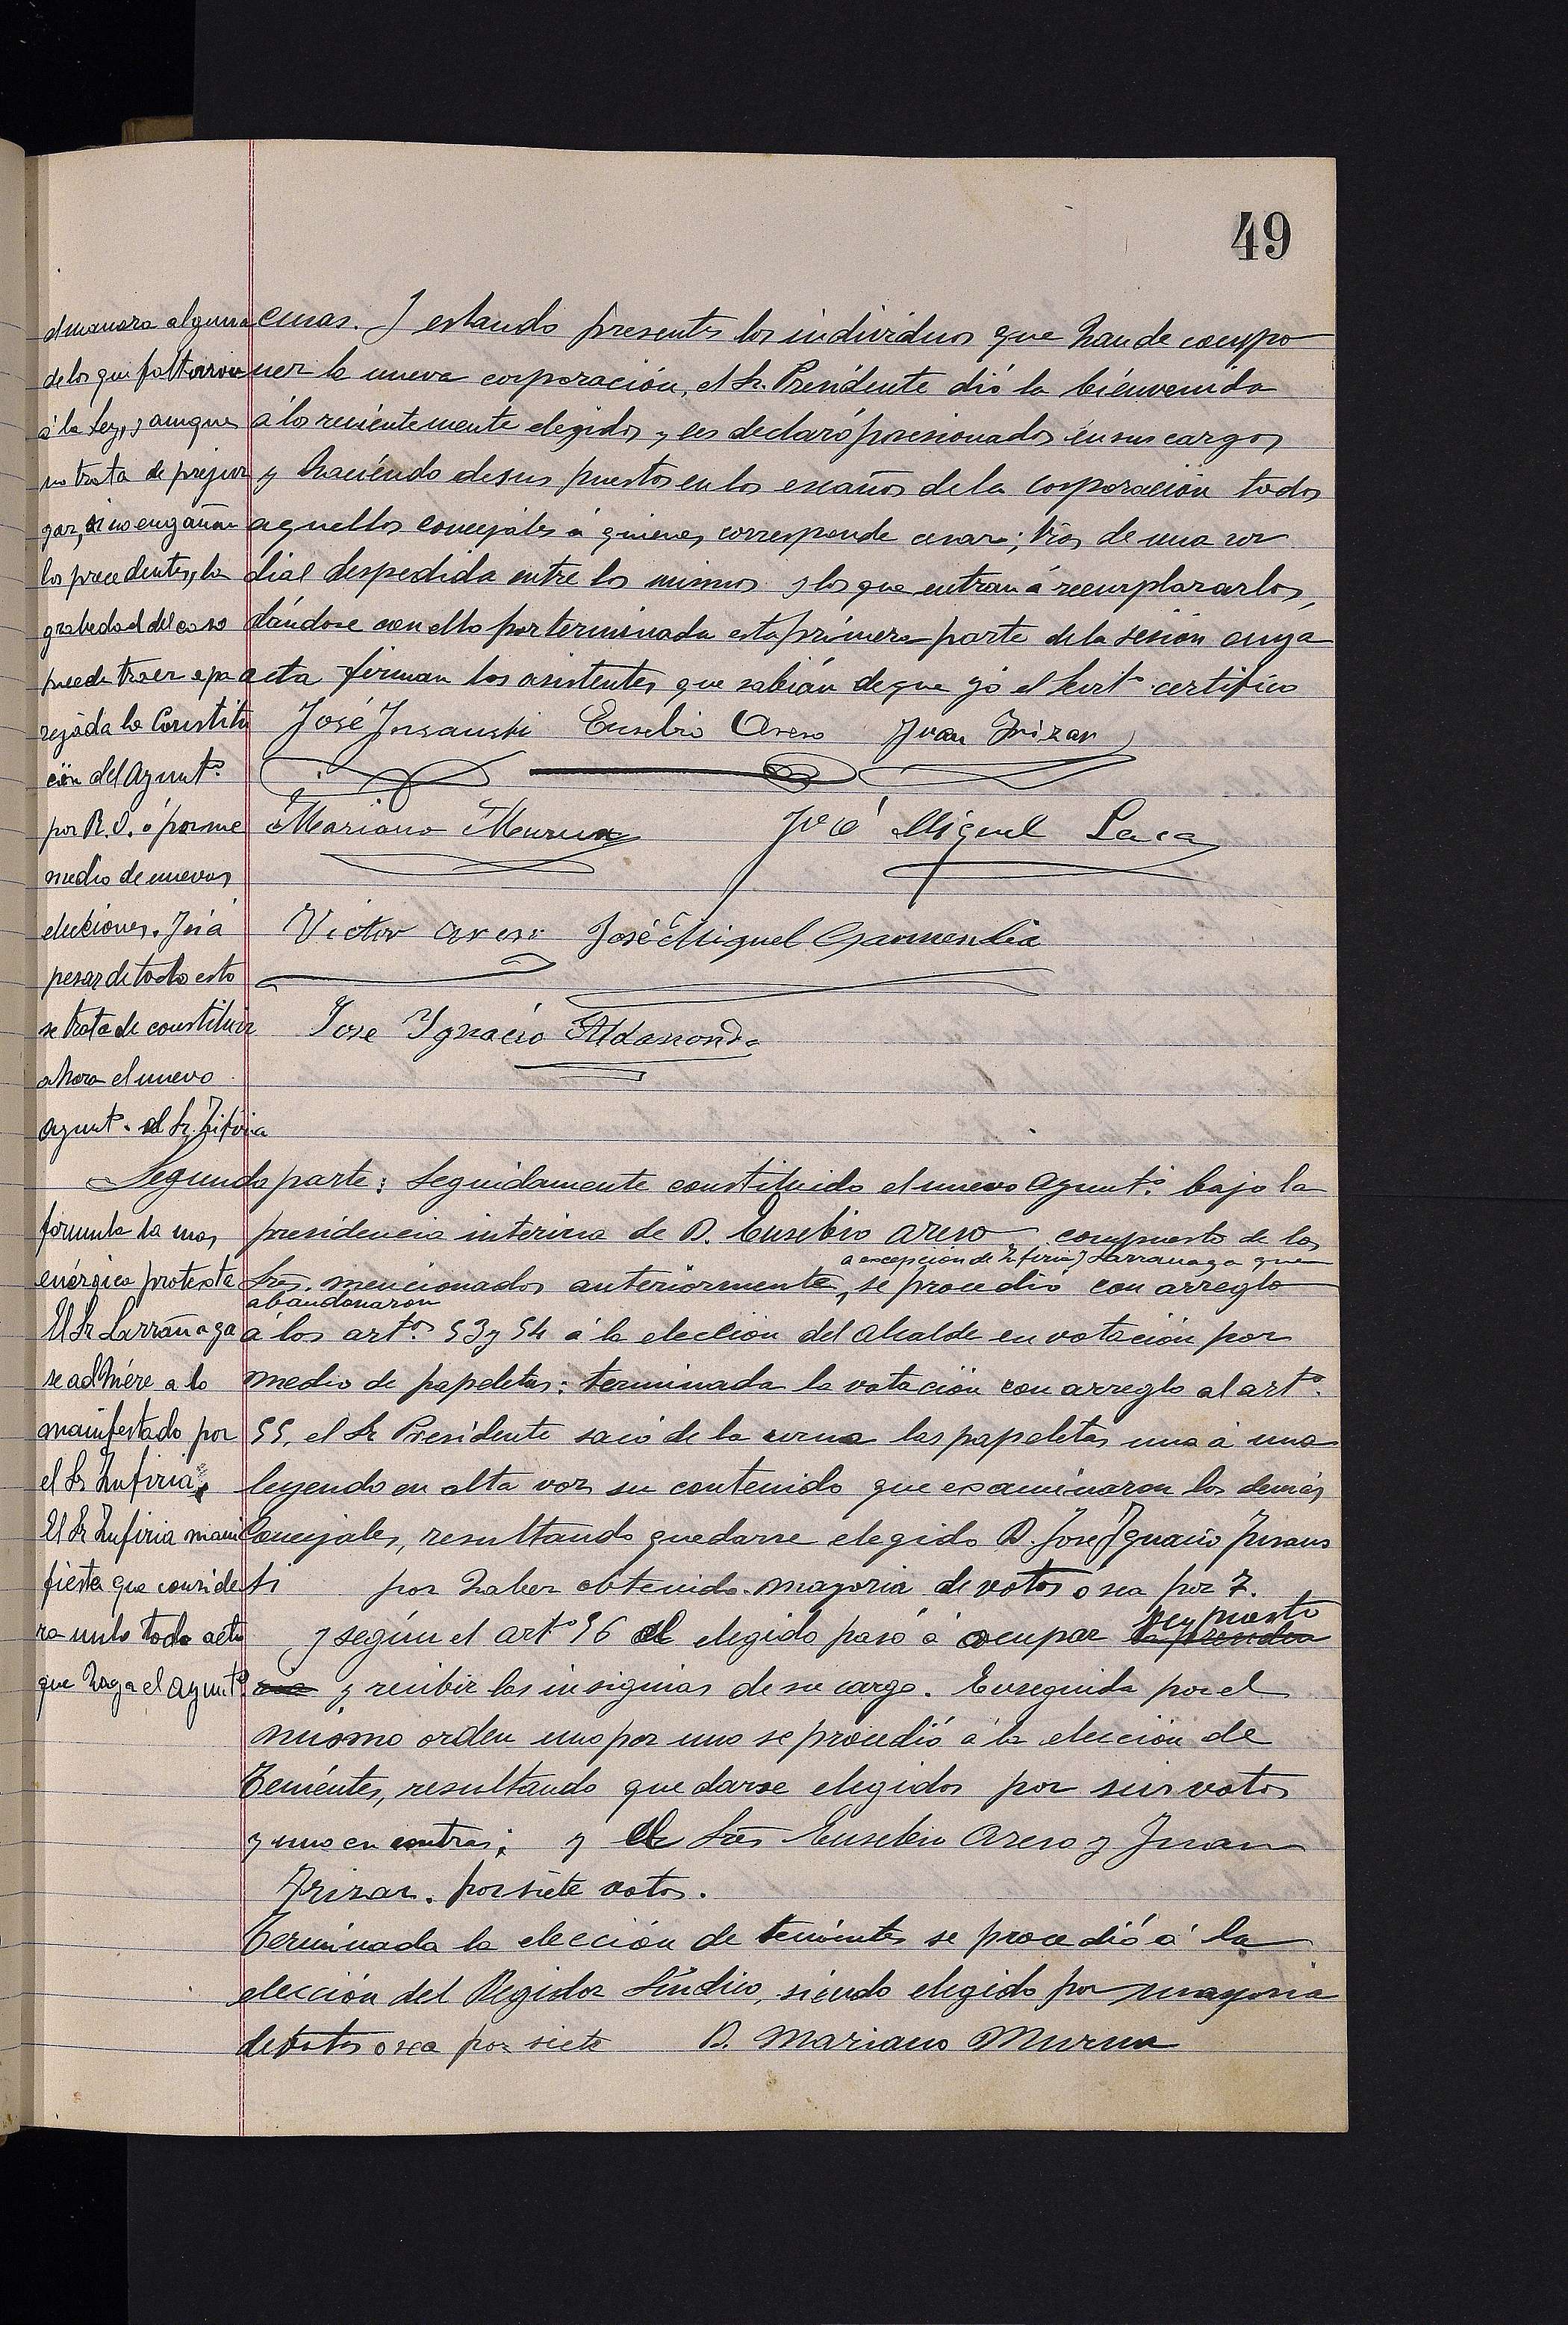 49
de manera alguna
de los que faltaron
á la Ley, y aunque
no trata de prejuz
gar, si no engañan
los precedentes, la
grabedad del caso
puede traer apa
rejada la Constitu
ción del Ayunt.º
por R. O. ó por me
medio de nuevas
elecciones. Y si á
pesar de todo esto
se trata de constituir
ahora el nuevo
Ayunt.º el Sr. Zufiria
formula la mas
enérgica protesta
El Sr Larrañaga
se adhiére a lo
manifestado por
el Sr Zufiria.
El Sr Zufiria mani
fiesta que conside
ra nulo todo acto
que haga el Ayunt.º
cinas. Y estando presentes los individuos que han de compo
ner la nueva corporación, el Sr. Presidente dió la bienvenida
á los reciéntemente elegidos y les declaró posesionados en sus cargos
y haciéndo de sus puestos en los escaños de la corporación todos
aquellos concejales á quienes corresponde cesar; tras de una cor
dial despedida entre los mismos y los que entran á reemplazarlos,
dándose con ello por terminada esta primera parte de la sesión cuya
acta firman los asistentes que sabián de que yo el Secrt.º certifico
José Jusausti Eusebio Areso Juan Irizar
Mariano Murua José Miguel Lasa
Victor Areso José Miguel Garmendia
Jose Ygnacio Aldasoro
Segunda parte: Seguidamente constituido el nuevo Ayunt.º bajo la
presidencia interina de D. Eusebio Areso compuesto de los
a excepcion de Zufiria y Larrañaga que
Sres. mencionados anteriormente, se procedió con arreglo
abandonaron
á los art.os 53 y 54 á la elección del Alcalde en votación por
medio de papeletas: terminada la votación con arreglo al art.º
55, el Sr Presidente sacó de la urna las papeletas una á una
leyendo en alta voz su contenido que examinaron los demás
Concejales, resultando quedarse elegido D. José Ygnacio Jusaus
ti por haber obtenido mayoria de votos ó sea por 7.
su puesto
y según el art.º 56 el elegido pasó á ocupar la presiden
cia y recibir las insignias de su cargo. Enseguida por el
mismo orden uno por uno se procedió á la elección de
Teniéntes, resultando quedarse elegidos por seis votos
y uno en contra; y el Sres Eusebio Areso y Juan
Irizar. por siéte votos.
Terminada la elección de teniéntes se procedió á la
elección del Regidor Síndico, siéndo elegido por mayoria
de votos ó sea por siete D. Mariano Murua